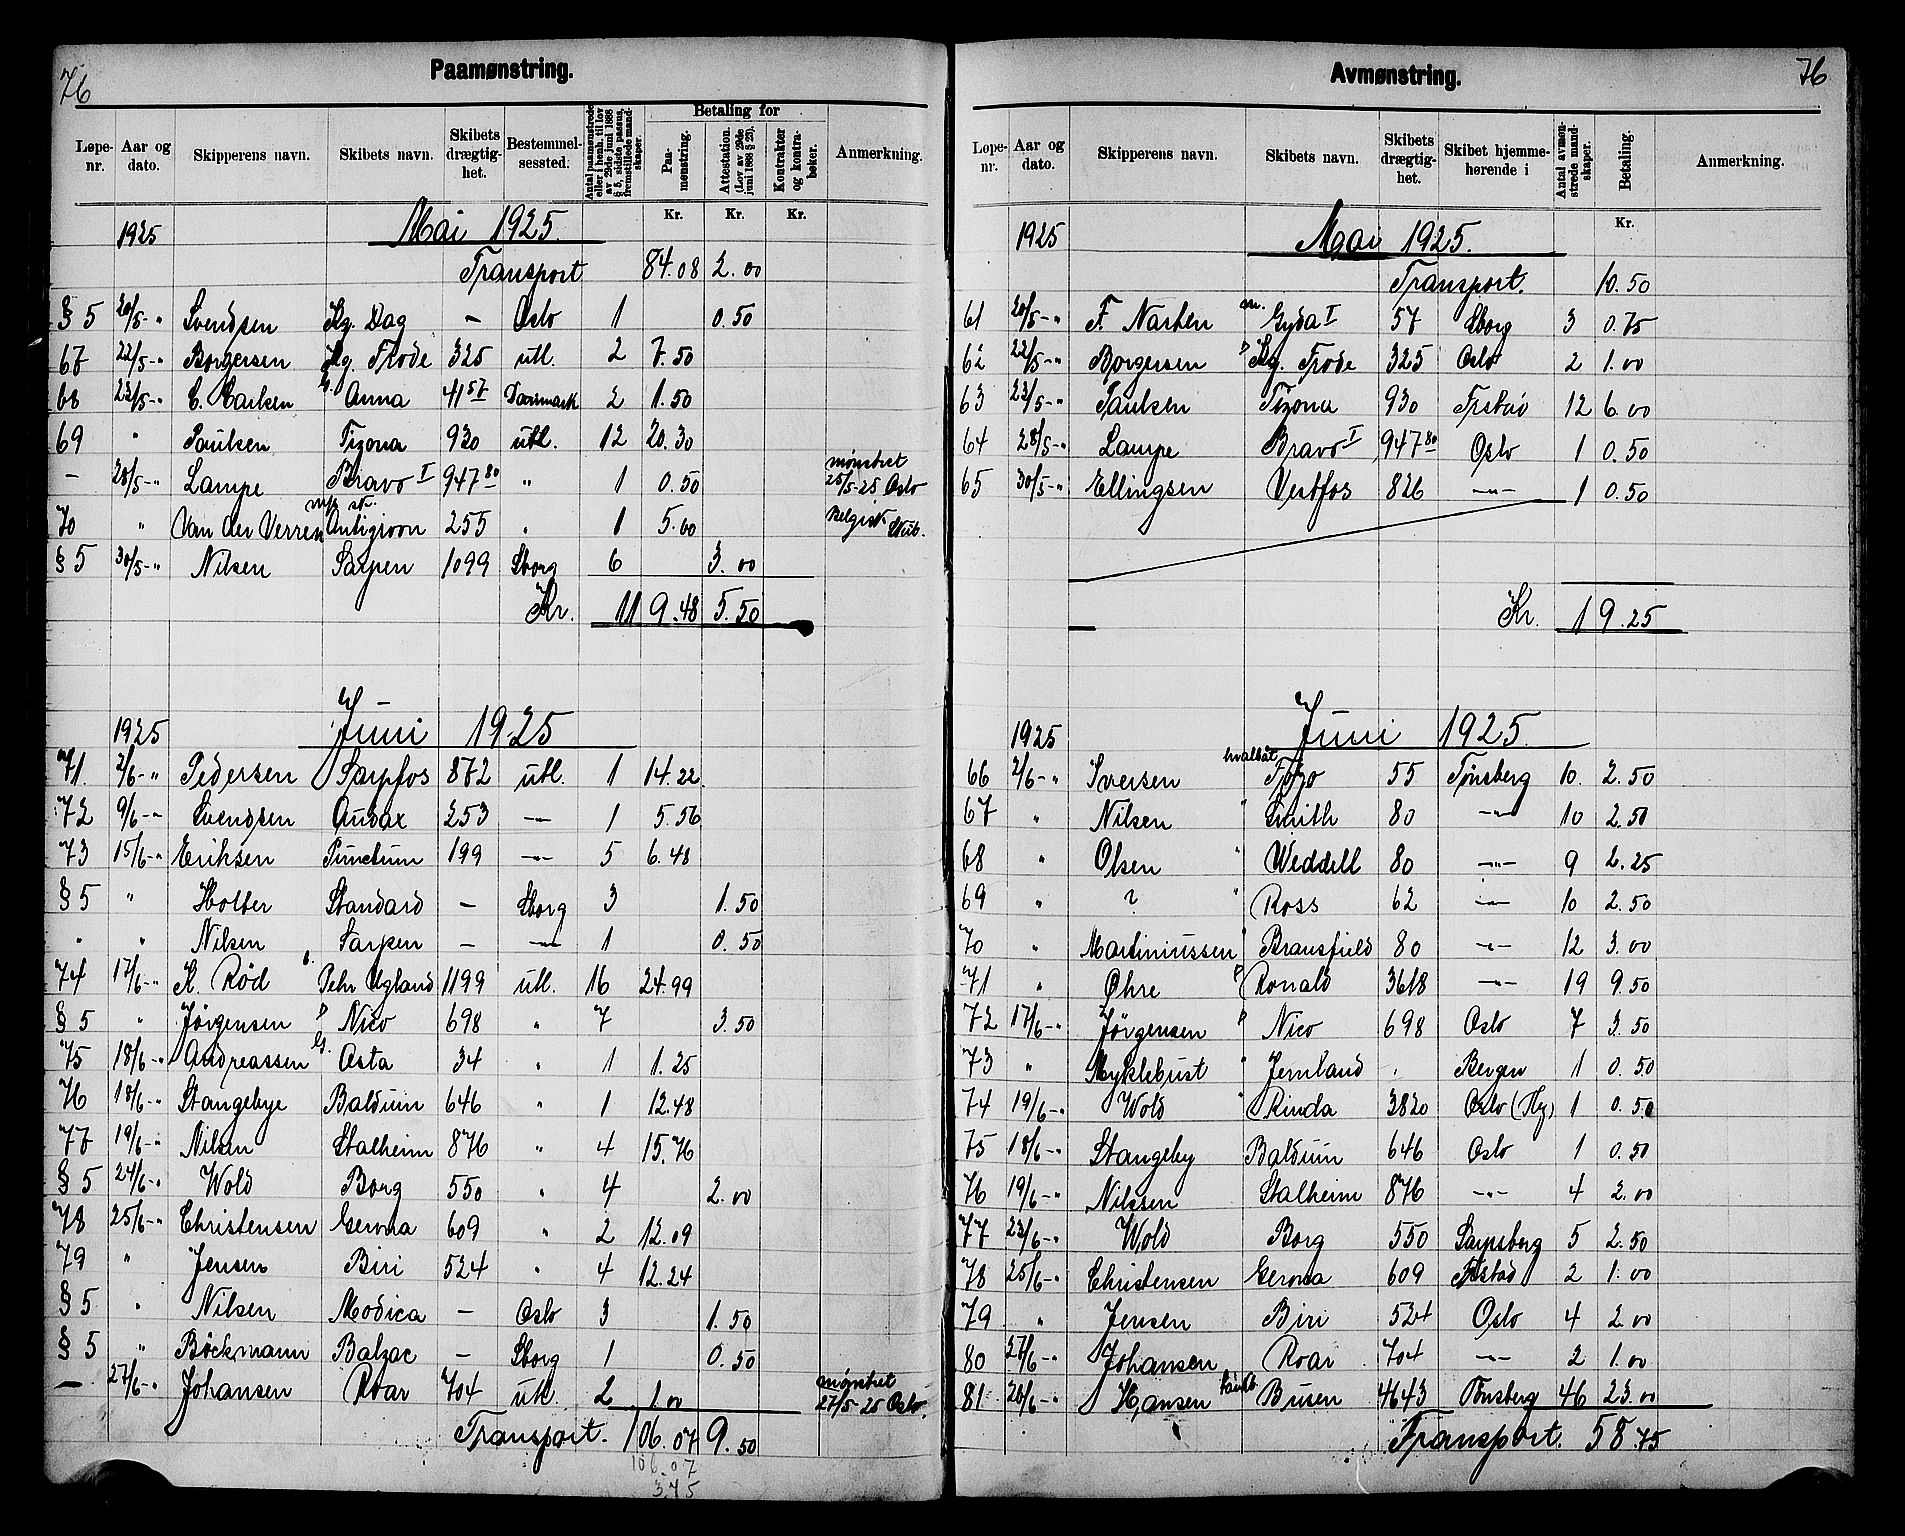 76
Paamønstring.
Løpe-nr. Aar og dato. Skipperens navn. Skibets navn. Skibets drægtig-het. Bestemmel-sessted. Antal paamønstrede eller i henh. til lov av 29de juni 1888 § 5, sidste passus, fremstillede mand-skaper. Betaling for Paa-mønstring. Attestation. (Lov av 29de juni 1888 § 23). Kontrakter og kontra-bøker. Anmerkning.
Kr. Kr. Kr.
1925 Mai 1925.
Transport 84.08 2.00
§ 5 20/5-" Svendsen Kg. Dag - Oslo 1 0.50
67 22/5-" Borgersen Kg. Frode 325 utl. 2 7.50
68 23/5-" C. Carlsen G. Anna 41 57 Danmark 2 1.50
69 " Paulsen Tizona 930 utl. 12 20.30
- 28/5-" Lampe Bravo I 947 80 " 1 0.50 mønstret 25/5-25 Oslo
70 " Van der Verren Antigoon 255 " 1 5.00 Belgisk
§ 5 30/5-" Nilsen Sarpen 1099 Sborg 6 3.00
Kr. 119.48 5.50
1925 Juni 1925
71. 2/6-" Pedersen Sarpfos 872 utl. 1 14.22
72 9/6-" Svendsen Audax 253 -"- 1 5.56
73 15/6-" Eriksen Punctum 199 -"- 5 6.48
§ 5 " Holter Standard - Sborg 3 1.50
" " Nilsen Sarpen - -"- 1 0.50
74 17/6-" K. Rød Pehr Ugland 1199 utl. 16 24.99
§ 5 " Jørgensen D Nico 698 " 7 3.50
75 18/6-" Andreassen G. Asta 34 " 1 1.25
76 18/6-" Stangebye Balduin 646 " 1 12.48
77 19/6-" Nilsen Stalheim 876 " 4 15.76
§ 5 24/6-" Wold Borg 550 " 4 2.00
78 25/6-" Christensen Gerona 609 " 2 12.09
79 " Jensen Biri 524 " 4 12.24
§ 5 " Nilsen Modica - Oslo 3 1.50
§ 5 " Böckmann Balzac - Sborg 1 0.50
- 27/6-" Johansen Roar 704 utl. 2 1.00 mønstret 27/5-25 Oslo.
Transport. 106.07 9.50
106.07
3.75
76
Avmønstring.
Løpe-nr. Aar og dato. Skipperens navn. Skibets navn. Skibets drægtig-het. Skibet hjemme-hørende i Antal avmøn-strede mand-skaper. Betaling. Anmerkning.
Kr.
1925 Mai 1925.
Transport. 10.50
61 20/5-" F. Narten m. Gyda I 57 Sborg 3 0.75
62 22/5-" Borgersen D Kg. Frode 325 Oslo 2 1.00
63 23/5-" Paulsen Tizona 930 Frstad 12 6.00
64 28/5-" Lampe Bravo I 947 80 Oslo 1 0.50
65 30/5-" Ellingsen Vestfos 826 -"- 1 0.50
Kr. 19.25
1925 Juni 1925.
66 2/6-" Iversen hvalbåt Togo 55 Tønsberg 10. 2.50
67 " Nilsen " Smith 80 -"- 10 2.50
68 " Olsen " Weddell 80 -"- 9 2.25
69 " ? " Ross 62 -"- 10 2.50
70 " Martiniussen " Bransfield 80 -"- 12 3.00
71 " Øhre D Ronald 3618 -"- 19 9.50
72 17/6-" Jörgensen D Nico 698 Oslo 7 3.50
73 " Myklebust " Jernland . Bergen 1 0.50
74 19/6-" Wold " Rinda 3820 Oslo 1 0.50
75 18/6-" Stangeby Balduin 646 Oslo 1 0.50
76 19/6-" Nilssen Stalheim 876 -"- 4 2.00
77 23/6-" Wold Borg 550 Sarpsborg 5 2.50
78 25/6-" Christensen Gerona 609 Frstad 2 1.00
79 " Jensen Biri 524 Oslo 4 2.00
80 27/6-" Johansen Roar 704 -"- 2 1.00
81 28/6-" Hansen Busen 4643 Tønsberg 46 23.00
Transport. 58.75